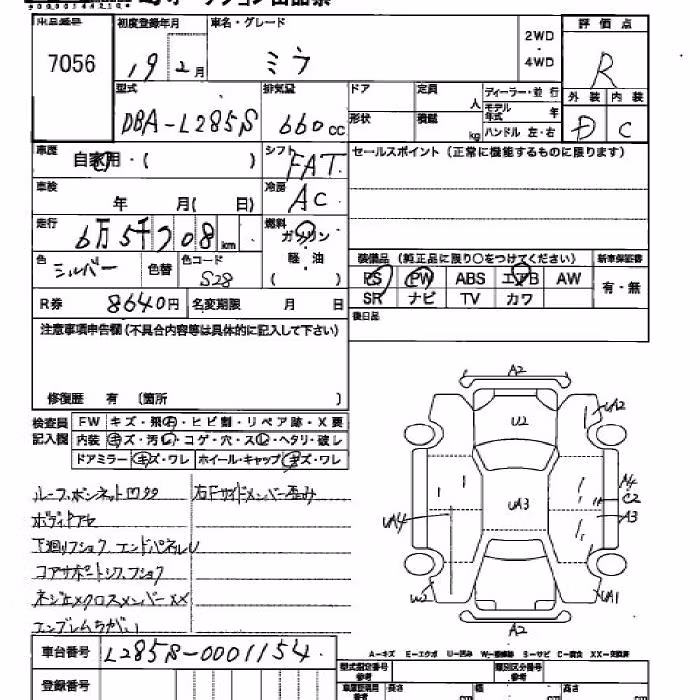 出品番号 7056
初度登録年月 19年 2月
車名・グレード ミラ
2WD・4WD
評価点 R
外装 D 内装 C
型式 DBA-L285S
排気量 660cc
ドア 形状
定員 人 積載 kg
ディーラー・並行
モデル年式 年
ハンドル 左・右
車歴 自家用・( )
シフト FAT
セールスポイント(正常に機能するものに限ります)
車検 年 月( 日)
冷房 AC
走行 6万5千708km
燃料 ガソリン 軽・油 ( )
色 シルバー 色替 色コード S28
装備品(純正品に限り○をつけてください) 新車保証書
PS PW ABS エアB AW 有・無
SR ナビ TV カワ
R券 8640円 名変期限 月 日
後日品
注意事項申告欄(不具合内容等は具体的に記入して下さい)
修復歴 有 〔箇所 〕
検査員記入欄 FW キズ・飛石・ヒビ割・リペア跡・X要
内装 キズ・汚れ・コゲ・穴・スレ・ヘタリ・破レ
ドアミラー キズ・ワレ ホイール・キャップ キズ・ワレ
ルーフ、ボンネット凹 右Fサイドメンバー歪み
ボディ
下廻りフショク エンドパネルU
コアサポート フショク
クロスメンバーXX
エンブレムちがい
A2
U2
UA2
A4
C2
UA3
A3
UA4
W2
UA1
A2
車台番号 L285S-0001154
A-キズ E-エクボ U-凹み W-補修跡 S-サビ C-腐食 XX-交換済
登録番号
型式指定番号 類別区分番号
長さ cm 幅 cm 高さ cm